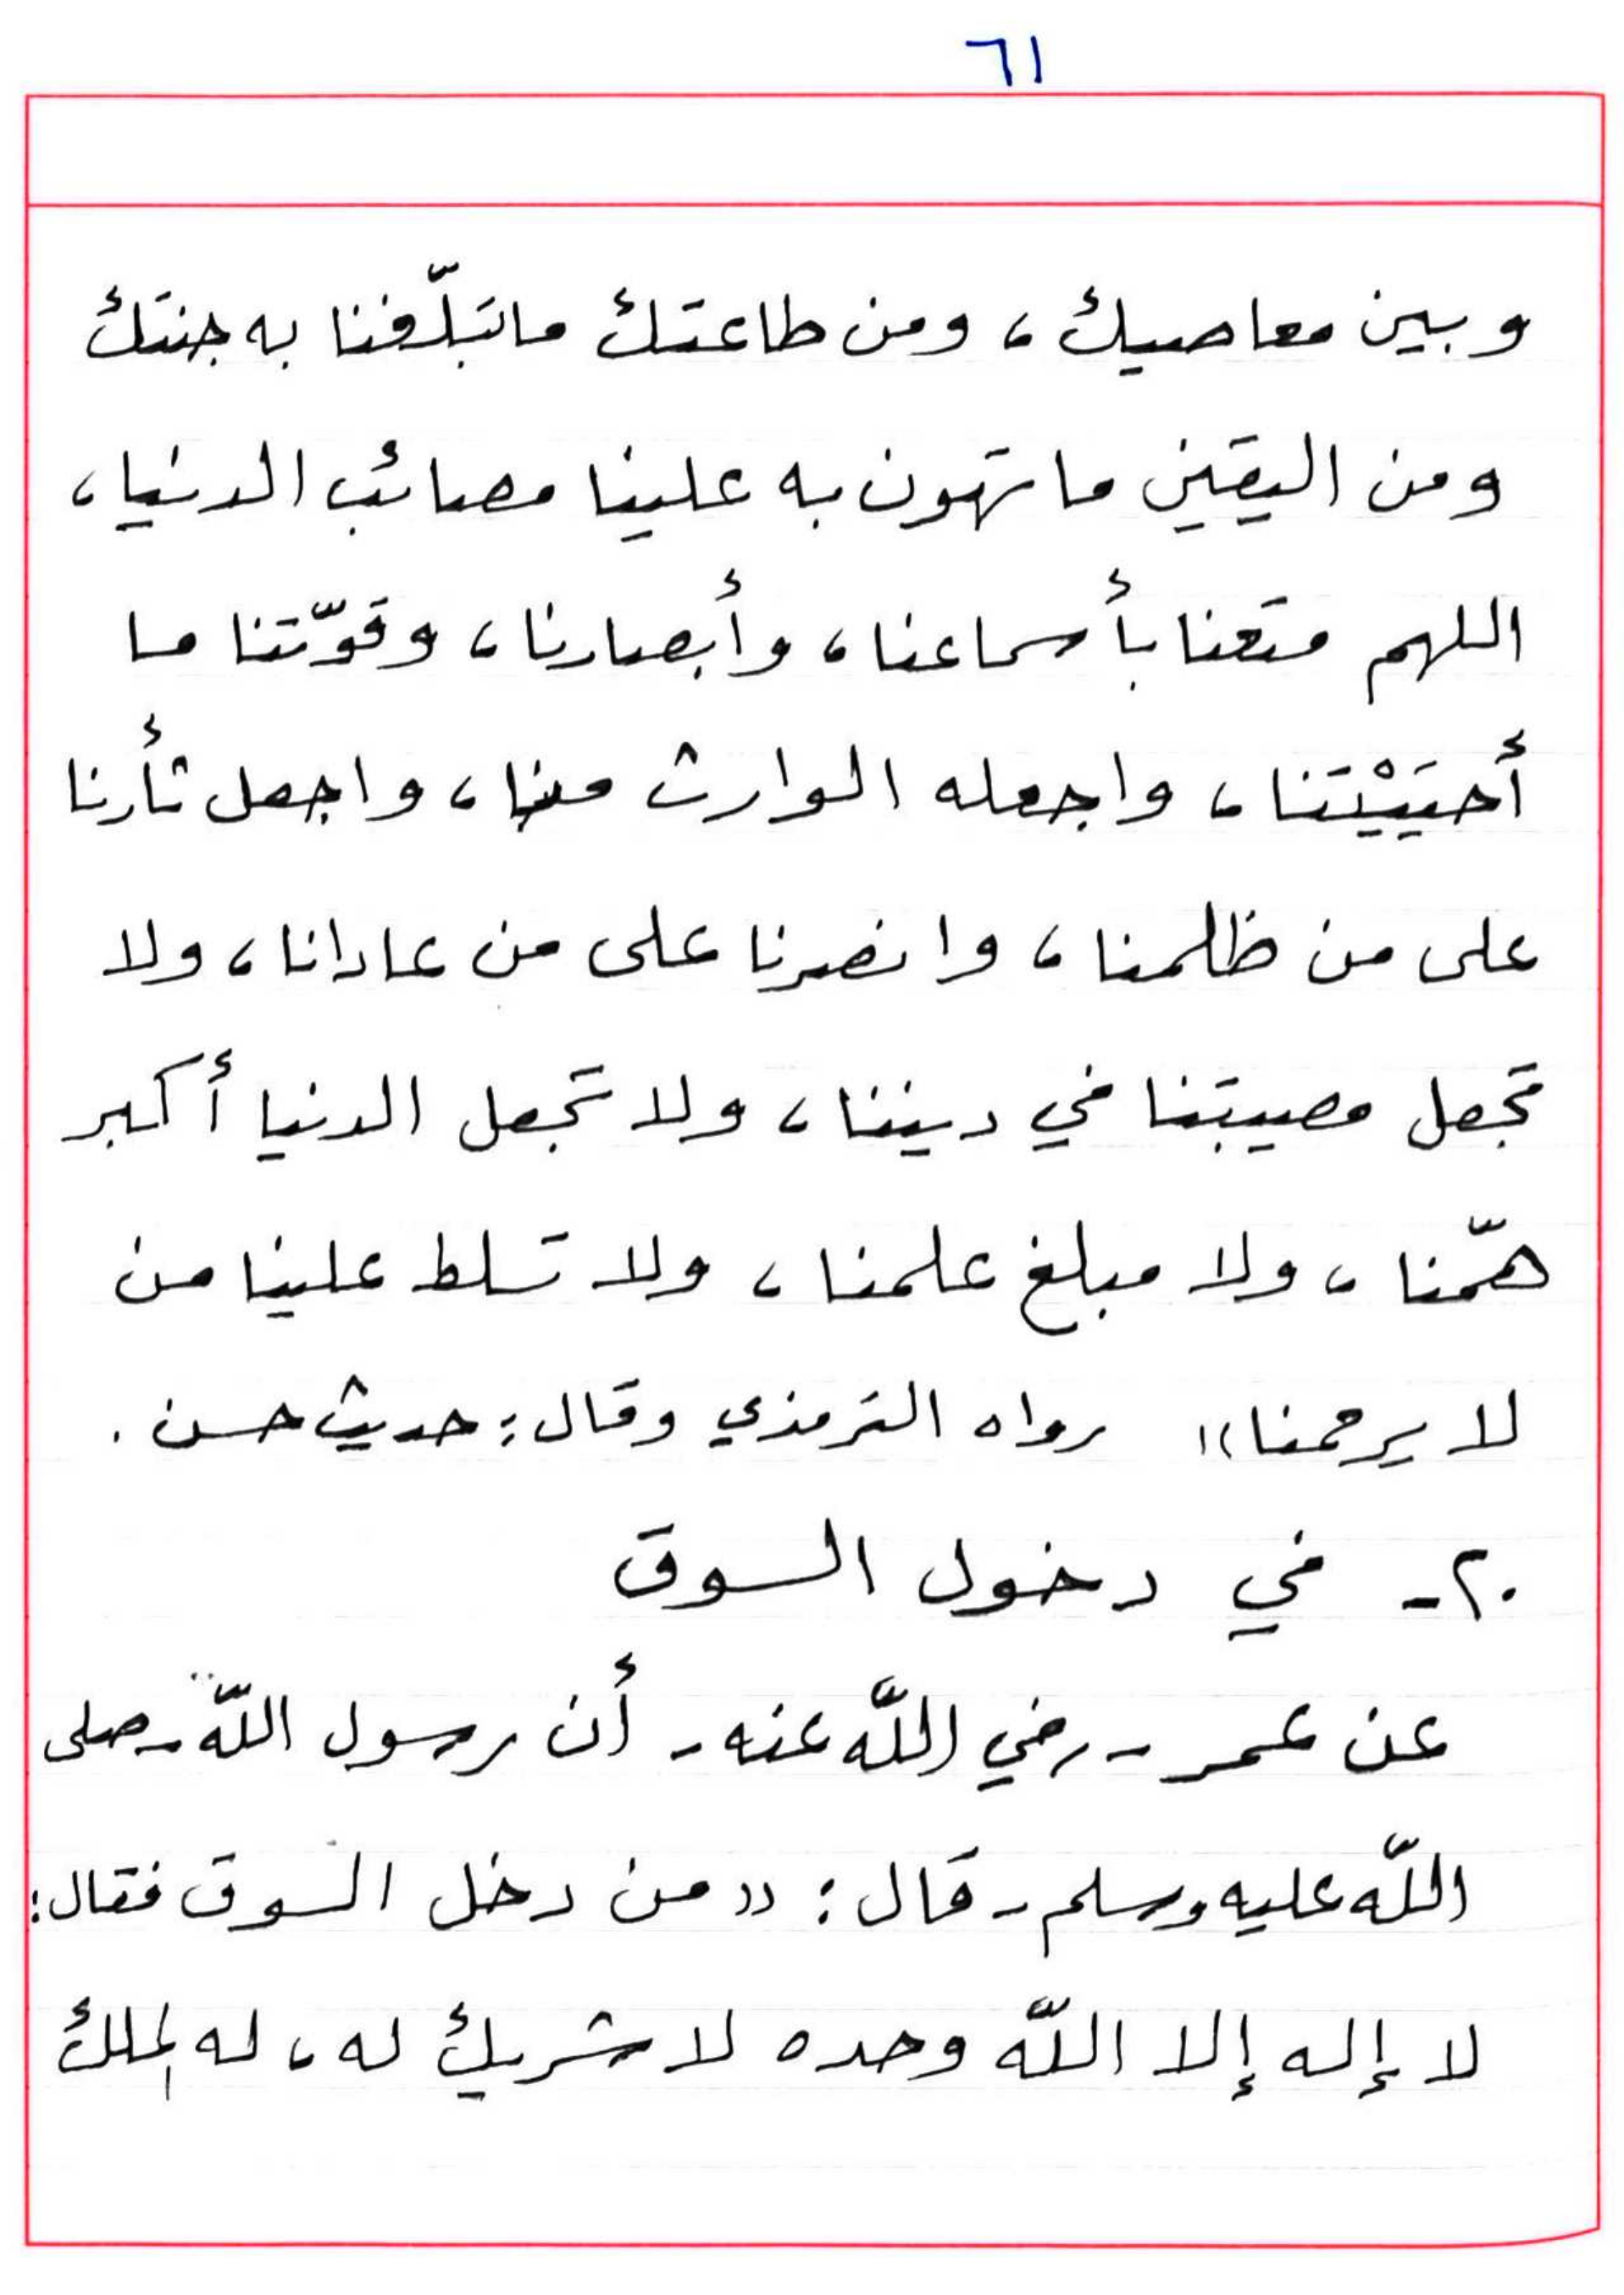 ٦١
وبين معاصيك، ومن طاعتك ما تبلّغنا به جنتك
ومن اليقين ما تهون به علينا مصائب الدنيا،
اللهم متعنا بأسماعنا، وأبصارنا، وقوّتنا ما
أحيَيْتَنا، واجعله الوارث منا، واجعل ثأرنا
على من ظلمنا، وانصرنا على من عادانا، ولا
تجعل مصيبتنا في ديننا، ولا تجعل الدنيا أكبر
همّنا، ولا مبلغ علمنا، ولا تسلط علينا من
لا يرحمنا)) رواه الترمذي وقال: حديث حسن.
٢٠- في دخول السوق
عن عمر - رضي اللّه عنه - أن رسول اللّه - صلى
اللّه عليه وسلم - قال: ((من دخل السوق فقال:
لا إله إلا اللّه وحده لا شريك له، له الملك